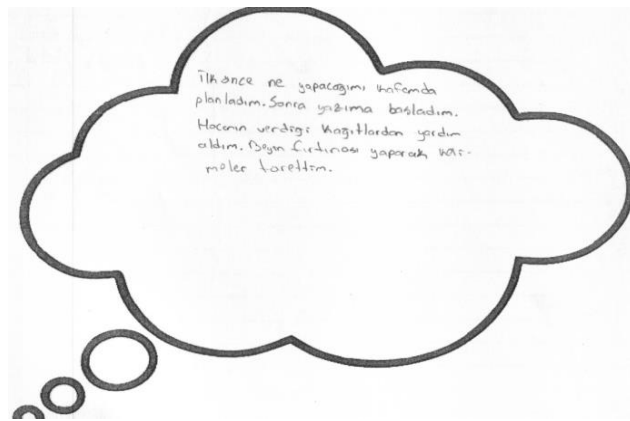 İlk önce ne yapacağımı kafamda
planladım. Sonra yazıma başladım.
Hocanın verdiği kağıtlardan yardım
aldım. Beyin fırtınası yaparak
meler türettim.